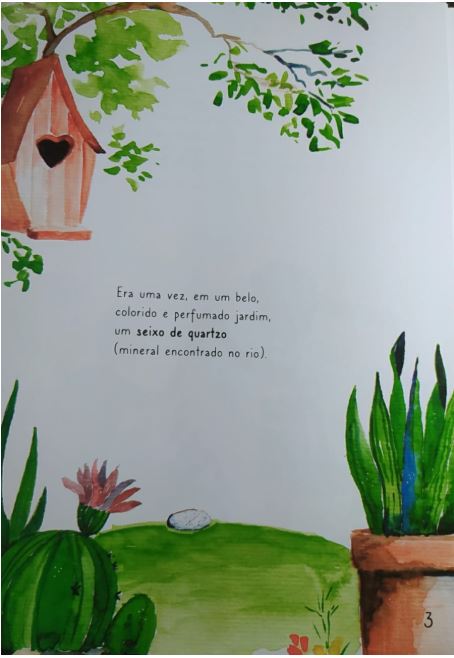 Era uma vez, em um belo,
colorido e perfumado jardim,
um seixo de quartzo
(mineral encontrado no rio).
3